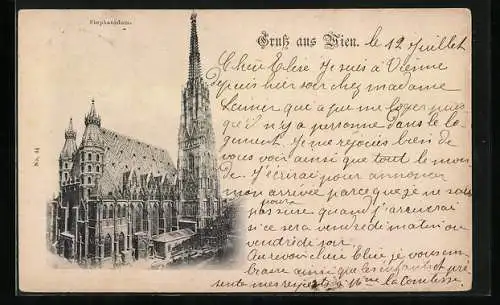 Stephansdom.
Gruß aus Wien. le 12 juillet
Chère Elise je suis à Vienne
depuis hier soir chez madame
qui a pu me loger puis
qu'il n'y a personne dans le lo
gement. Je me rejouis bien de
vous voir ainsi que tout le mon
de. J'écrirai pour annoncer
mon arrivée parce que je ne sais
pas sure quand j'arriverai
pour
si ce sera vendredi matin ou
vendredi soir.
Au revoir chère Elise je vous em
brasse ainsi que les enfants et pré
sente mes respects à Mme la Comtesse.
No. 44